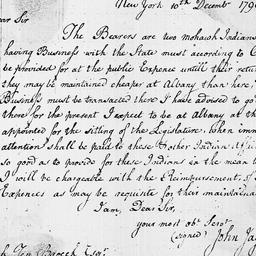 New York 10th Decembr 179
ear Sir
The Bearers are two Mohawk Indians
having Business with the State must according to C
be provided for at the public Expence untill their retu
they may be maintained cheaper at Albany than here;
Business must be transacted there I have advised to go
there for the present I expect to be at Albany at th
appointed for the sitting of the Legislature. When imm
attention shall be paid to these & other Indians
so good as to provide for these Indians in the mean t
I will be chargeable with the Reimbursement, of
Expences as may be requisite for their maintenan
I am, Dear Sir,
your most obt Servt
(signed) John Ja
Ten Broeck Esqr